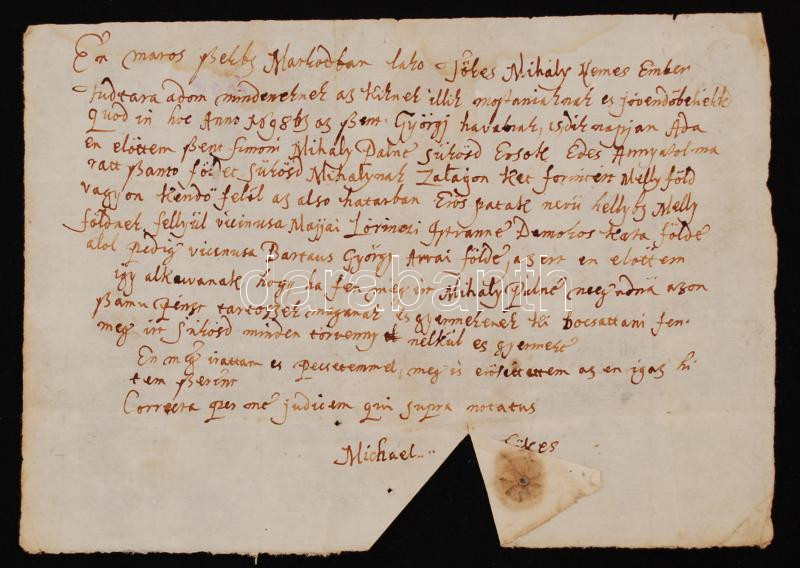 En maros szekbz Markodban lako Jőkes Mihály Nemes Ember
tudtara adom mindeneknek az kiknek illik mostaniaknak es jövendőbeliekk
quod in hoc Anno 1698bz az szent Györgj havanak, napjan Ada
en előttem szent simoni Mihály Palne sükösd Ersok Edes Annyatol ma
ratt szanto földet sükösd Mihalynak Zalagon ket forintert Melly föld
vagyon kendő felől az also hatarban Erős patak nevü hellybz Melly
földnek fellyül vicinusa Majjai Lőrinczi Istvanne Damokos Kata földe
alol pedig vicinusa Bartaus György Arvai földe azert en előttem
igy alkuvanak hogy ha fen meg irt Mihály Palne meg adna azon
szamu penzt tartozzek maganak es gyermekenek ki bocsattani fen
meg irt sükösd minden törveny nelkül es gyermeke
En meg irattam es pecsetemmel, meg is erősitettem az en igaz hi
tem szerint
Correcta per me judicem qui supra notatus
Michael Jőkes
darabanth